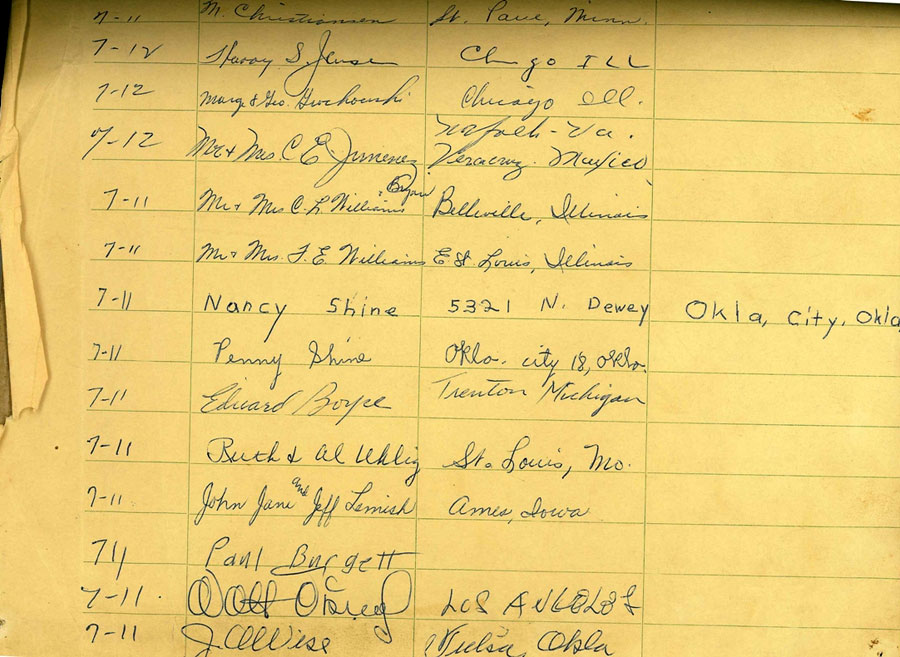 7-11 M. Christiansen St. Paul, Minn.
7-12 Harry S. Jensen Chgo ILL
7-12 Marg & Geo. Chicago Ill.
Norfolk - Va.
7-12 Mr + Mrs. C. E. Jimenez Veracruz. Mexico
+ Bryan
7-11 Mr + Mrs C. L Williams Belleville, Illinois
7-11 Mr + Mrs. F. E. Williams E St. Louis, Illinois
7-11 Nancy Shine 5321 N. Dewey Okla, City, Okla
7-11 Penny Shine Okla. city 18, Okla.
7-11 Edward Boyce Trenton Michigan
7-11 Ruth & Al Uhlig St. Louis, Mo.
7-11 John Jane and Jeff Ames, Iowa
711 Paul Burgett
7-11 Walt LOS ANGELES
7-11 J. A. Wise Tulsa, Okla